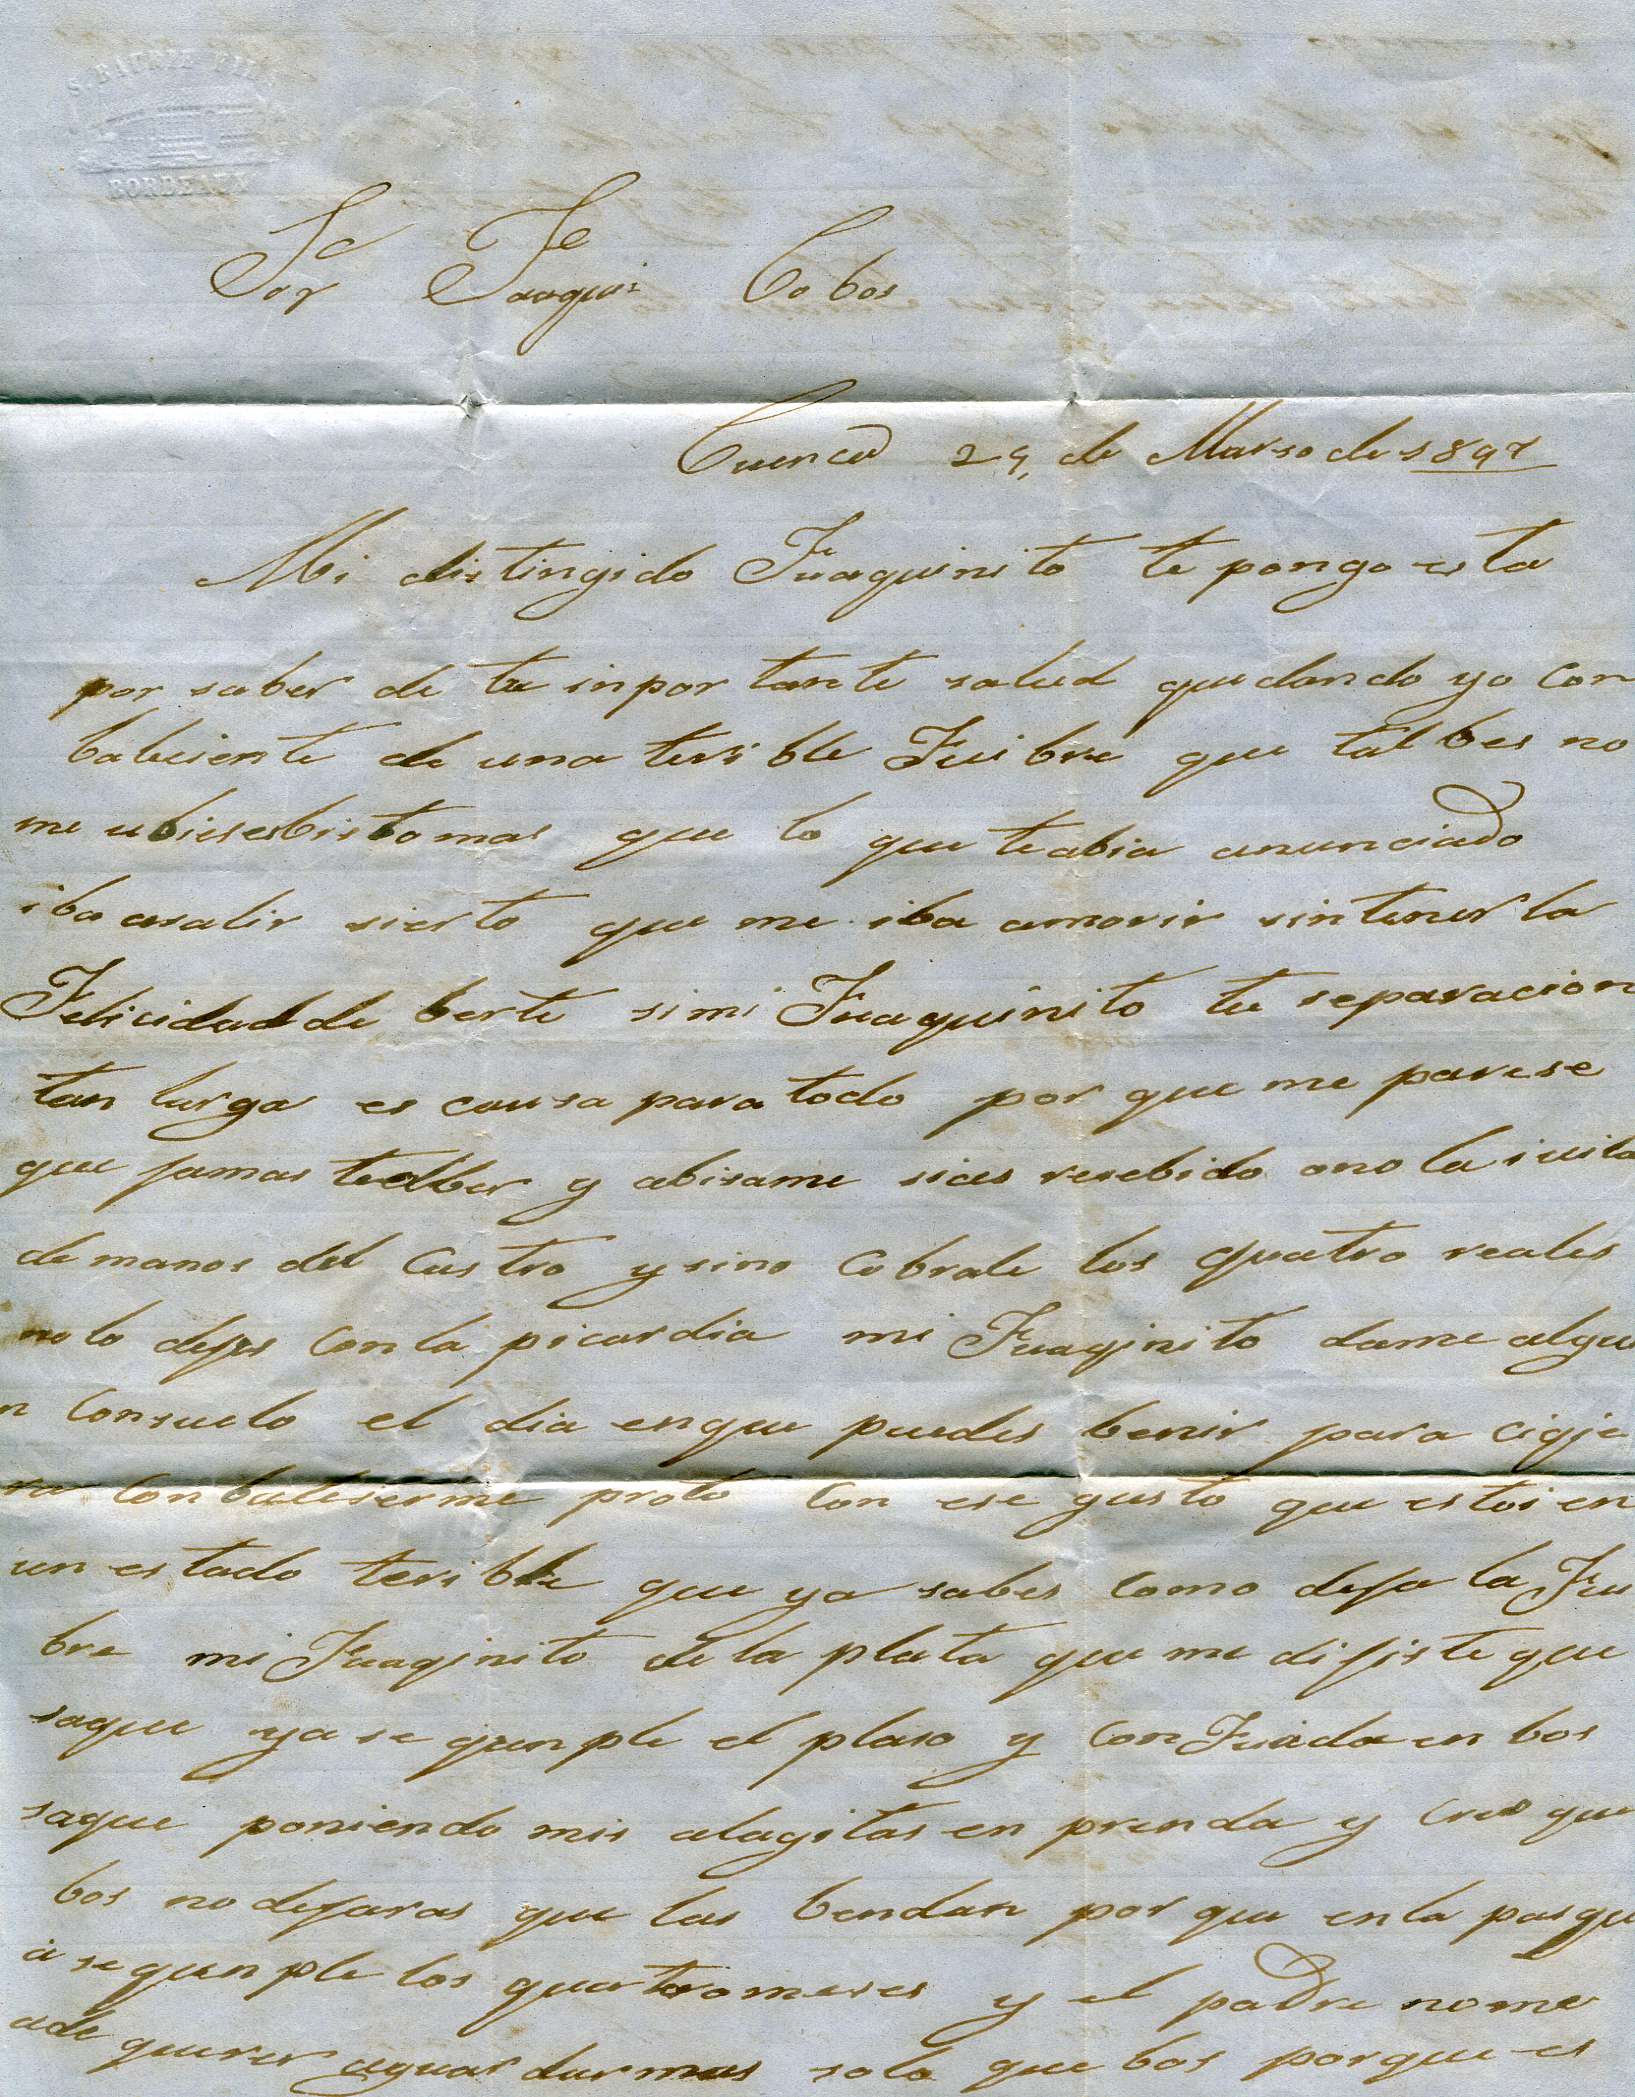 BORDEAUX
Sor Juaqui Cobos
Cuenca 29, de Marso de 1897
Mi distingido Juaquinito te pongo esta
por saber de tu inportante salud quedando yo con
baleciente de una terible Fuibre que tal bes no
me ubieses bisto mas que lo que te abia anunciado
iba asalir sierto que me iba amorir sintener la
Felicidad de berte si mi Juaquinito tu separacion
tan larga es causa para todo por que me parese
que jamas teolber y abisame sias resebido ono la
de manos del Castro y sino Cobrale los quatro reales
no lo dejes Con la picardia mi Juaginito dame algu
n Consuelo el dia enque puedes benir para
ra Conbaleserme proto Con ese gusto que estoi en
un estado terible que ya sabes Como deja la Fui
bre mi Juaginito de la plata que me dijiste que
saque ya se qunple el plaso y Confiada en bos
saque poniendo mis alagitas en prenda y Creo que
bos no dejaras que las bendan por que en la pasqu
a se qunple los quatro meses y el padre no me
ade querer aguardar mas solo que bos porque es